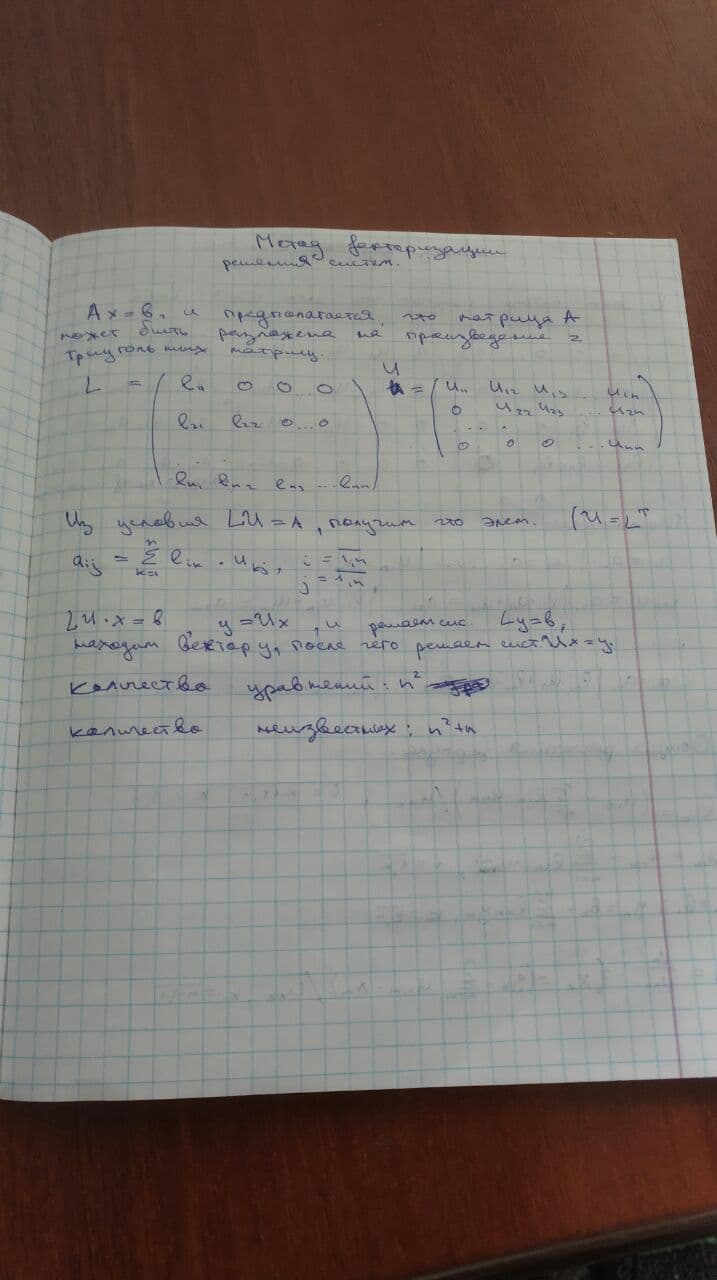 Метод факторизации
решения систем.
Ax = b, и предполагается, что матрица A
может быть разложена на произведение 2
треугольных матриц.
L = ( l₁₁ 0 0...0 U = ( u₁₁ u₁₂ u₁₃ ... u₁ₙ
l₂₁ l₂₂ 0...0 0 u₂₂ u₂₃ ... u₂ₙ
. . . . . . .
lₙ₁ lₙ₂ lₙ₃ ...lₙₙ ) 0 0 0 ... uₙₙ )
Из условия LU = A, получим что элем. (U = Lᵀ
aᵢⱼ = ∑ₖ₌₁ⁿ lᵢₖ · uₖⱼ, i = 1,n
j = 1,n
LU · x = b, y = Ux, и решаем сис. Ly = b,
находим вектор y, после чего решаем сист. Ux = y.
количество уравнений: n²
количество неизвестных: n² + n